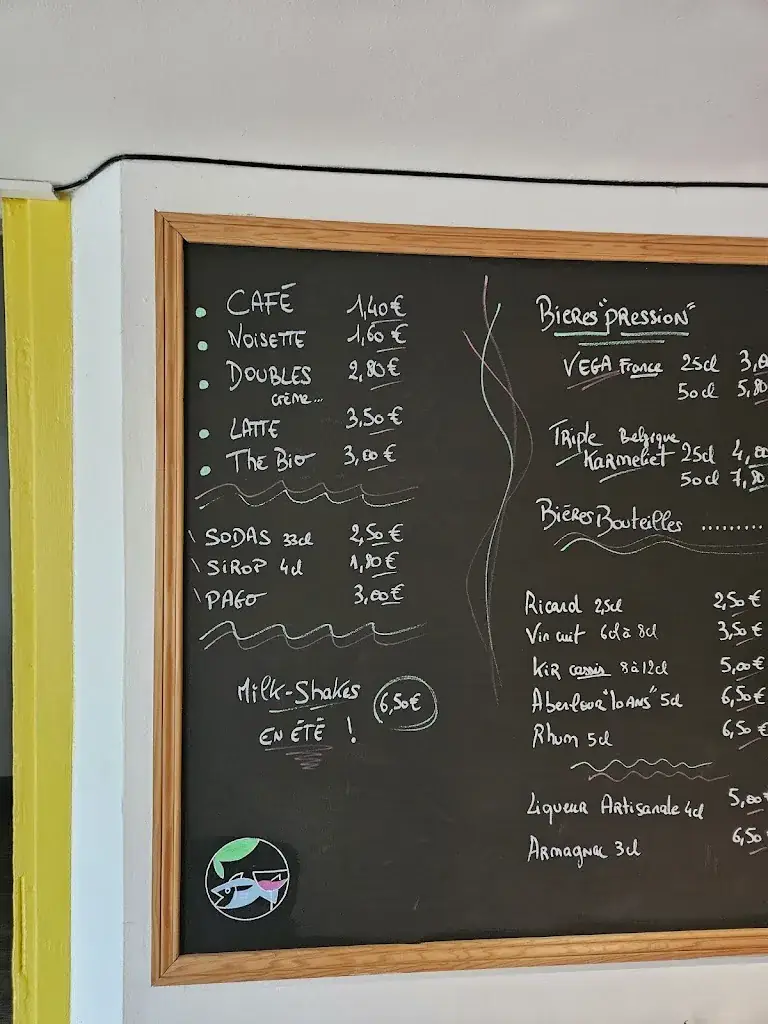 CAFÉ 1,40€
NOISETTE 1,60€
DOUBLES 2,80€
crème...
LATTE 3,50€
THE BIO 3,00€
SODAS 33cl 2,50€
SIROP 4cl 1,80€
PAGO 3,00€
Milk-Shakes 6,50€
EN ÉTÉ !
BIERES "PRESSION"
VEGA France 25cl 3,00
50cl 5,80
Triple Belgique
Karmeliet 25cl 4,00
50cl 7,80
Biéres Bouteilles .........
Ricard 2,50€
Vin cuit 6cl à 8cl 3,50€
KIR cassis 8 à 12cl 5,00€
Aberlour "10 ANS" 5cl 6,50€
Rhum 5cl 6,50€
Liqueur Artisanale 4cl 5,00€
ARMAGNAC 3cl 6,50